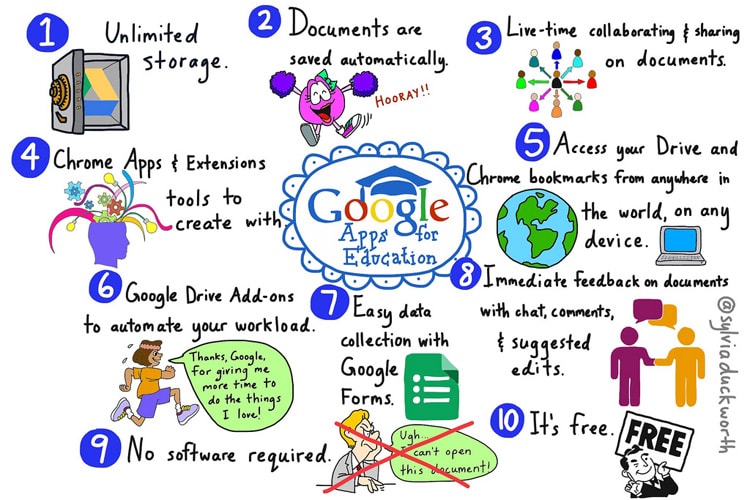 1 Unlimited
storage.
2 Documents are
saved automatically.
HOORAY!!
3 Live-time collaborating & sharing
on documents.
4 Chrome Apps & Extensions
tools to
create with.
Google
Apps for
Education
5 Access your Drive and
Chrome bookmarks from anywhere in
the world, on any
device.
6 Google Drive Add-ons
to automate your workload.
Thanks, Google,
for giving me
more time to
do the things
I love!
7 Easy data
collection with
Google
Forms.
8 Immediate feedback on documents
with chat, comments,
& suggested
edits.
9 No software required.
Ugh...
I can't open
this document!
10 It's free.
FREE
@sylviaduckworth